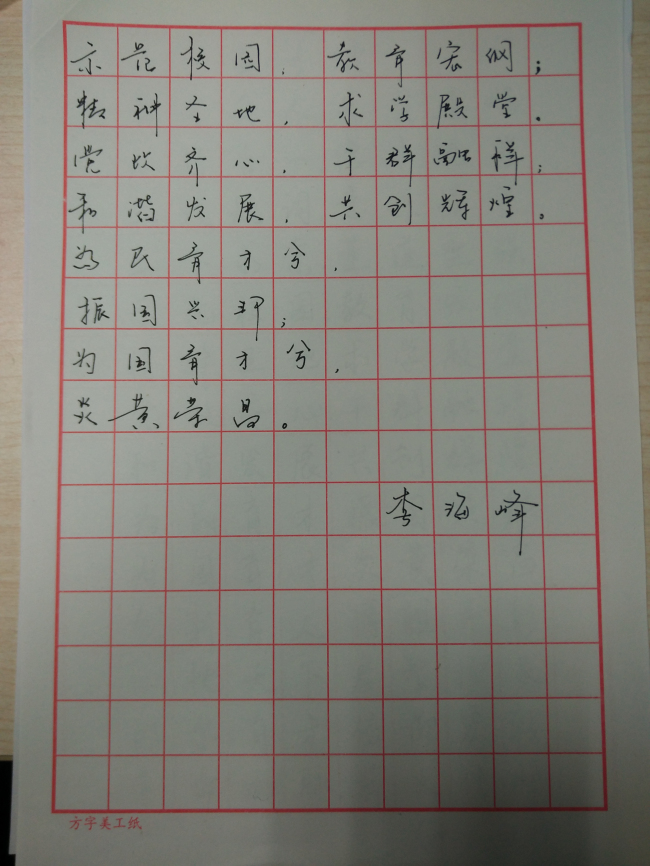 示范校园，教育宏纲；
精神圣地，求学殿堂。
党政齐心，干群融祥；
和谐发展，共创辉煌。
为民育才兮，
振国兴邦；
为国育才兮，
炎黄荣昌。
李海峰
方字美工纸